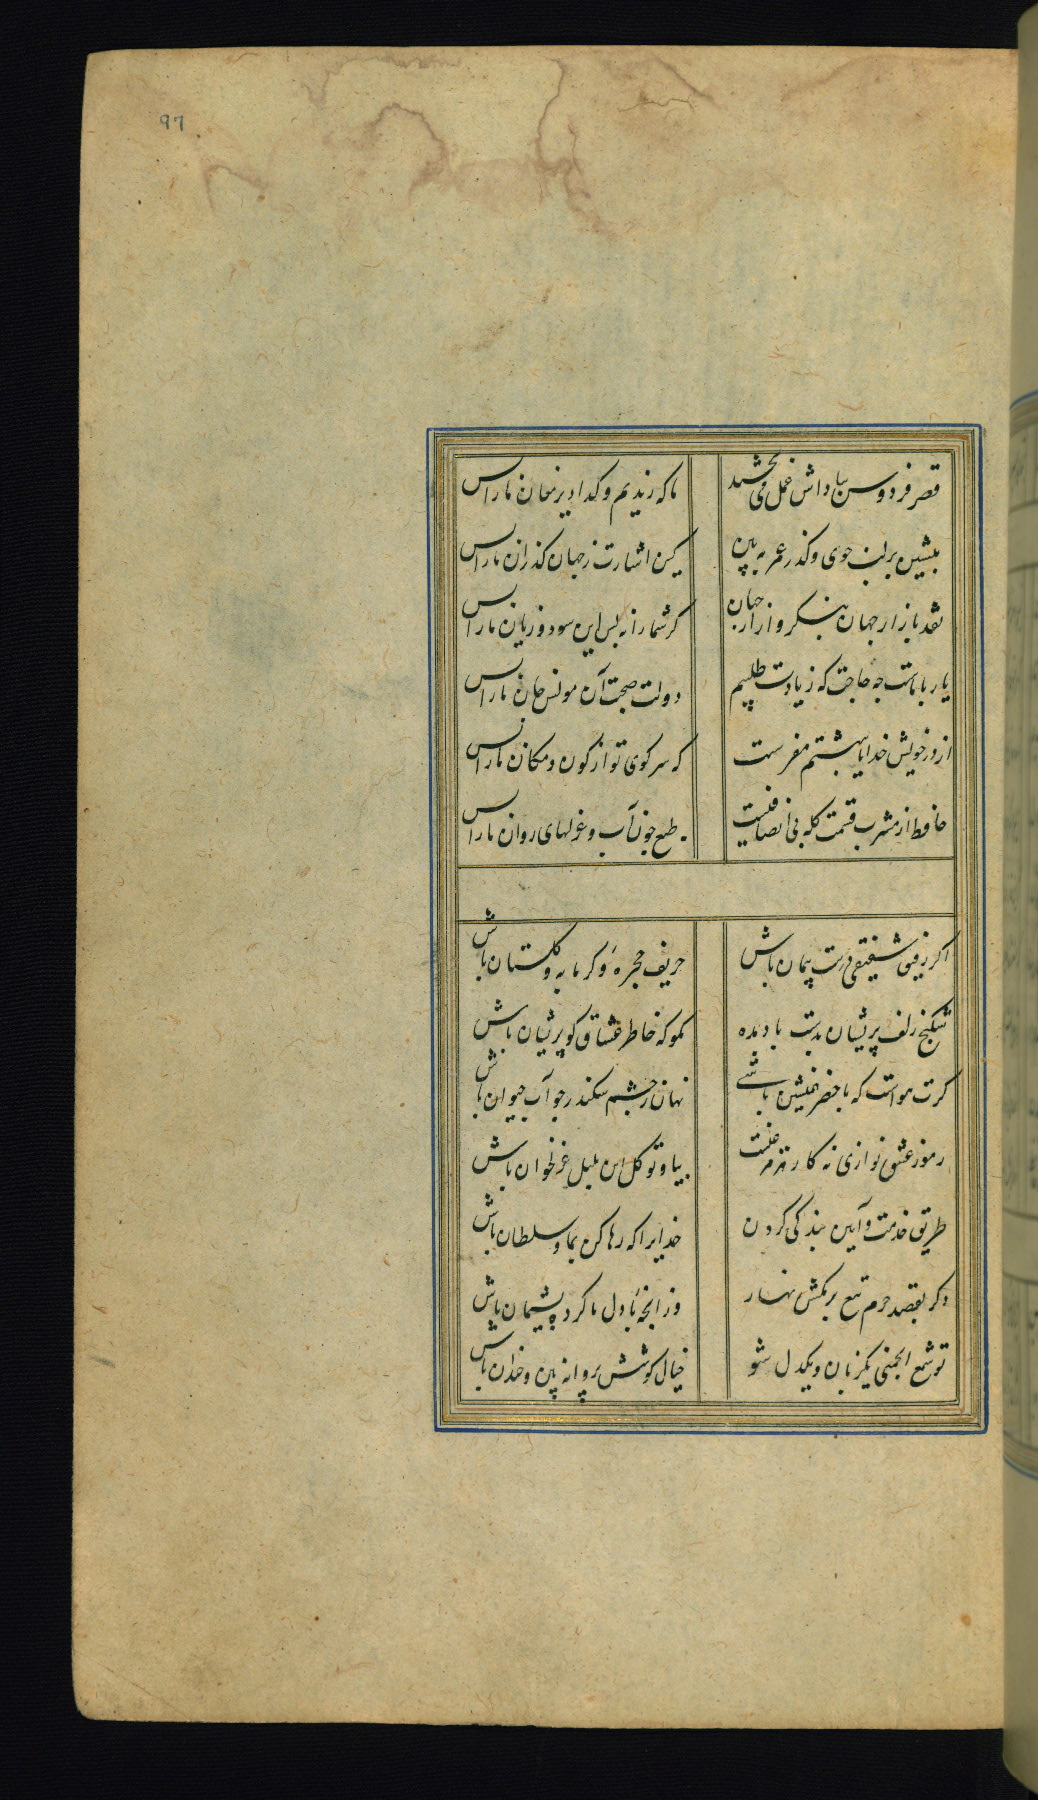 97
قصر فردوس بپاداش عمل می بخشند ما که رندیم و کدا دیر مغان ما را بس
بنشین بر لب جوی و گذر عمر ببین کین اشارت ز جهان کذران ما را بس
نقد بازار جهان بنکر و آزار جهان کر شما را نه بس این سود و زیان ما را بس
یار با ماست چه حاجت که زیادت طلبیم دولت صحبت آن مونس جان ما را بس
از در خویش خدایا ببهشتم مفرست که سر کوی تو از کون و مکان ما را بس
حافظ از مشرب قسمت کله بی انصافیست طبع چون آب و غزلهای روان ما را بس
اکر رفیق شفیقی درست پیمان باش حریف حجره و کرمابه و کلستان باش
شکنج زلف پریشان بدست باد مده مکو که خاطر عشاق کو پریشان باش
کرت هواست که با خضر همنشین باشی نهان ز چشم سکندر چو آب حیوان باش
رموز عشق نوازی نه کار هر مرغیست بیا و نو کل این بلبل غزلخوان باش
طریق خدمت و آیین بندکی کردن خدایرا که رها کن بما و سلطان باش
دکر بصید حرم تیغ برمکش زنهار وز انچه با دل ما کرده پشیمان باش
تو شمع انجمنی یکزبان و یکدل شو خیال کوشش پروانه بین و خندان باش